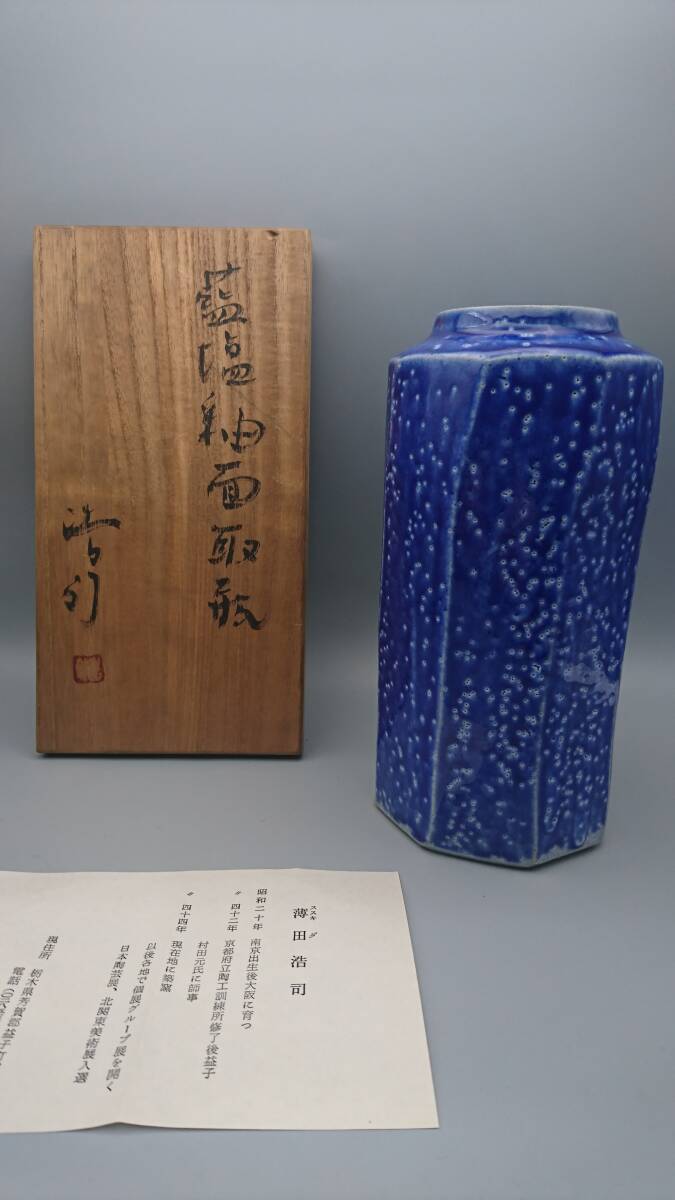 藍塩釉面取瓶
浩司
薄田浩司
ススキダ
昭和二十年 南京出生後大阪に育つ
〃 四十二年 京都府立陶工訓練所修了後益子
村田元氏に師事
〃 四十四年 現在地に築窯
以後各地で個展グループ展を開く
日本陶芸展、北関東美術展入選
現住所 栃木県芳賀郡益子町
電話